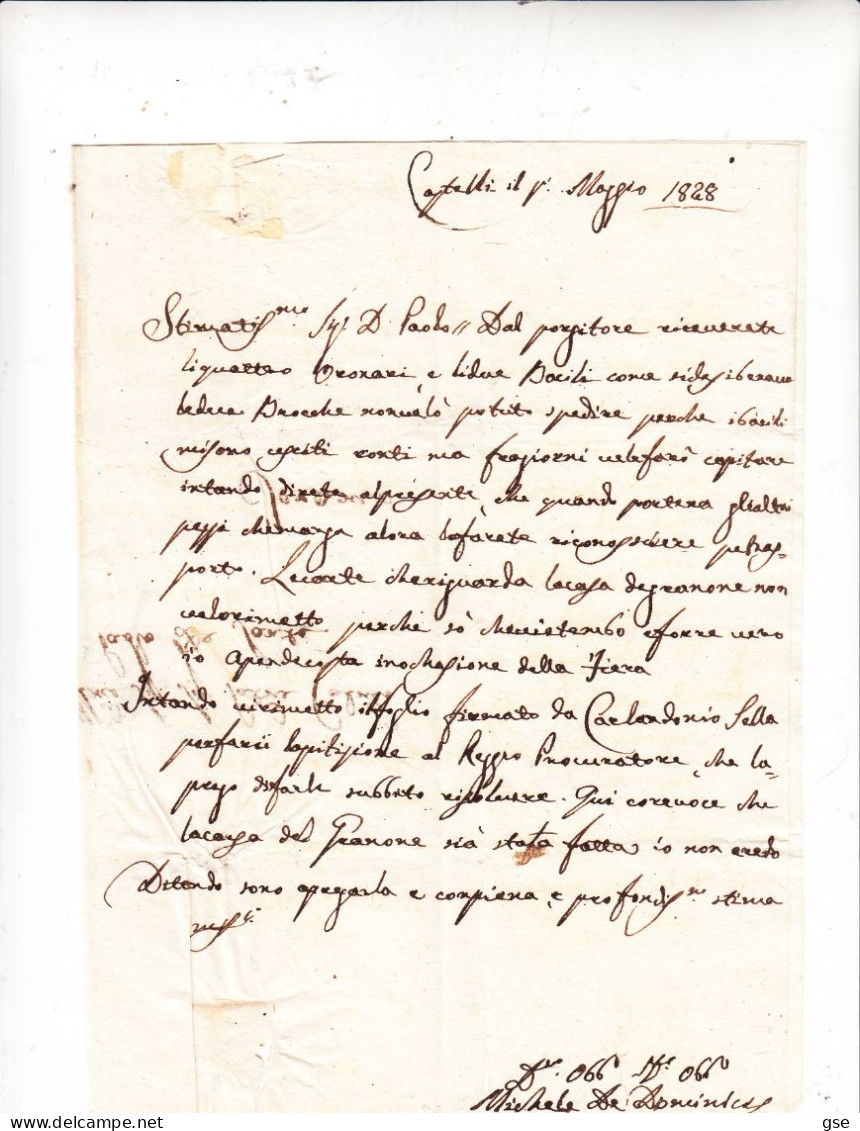 Castelli il p.º Maggio 1828
Stimatis.mo Sig.r D Paolo// Dal porgitore riceverete
liquattro Oronari, e lidue Bacili come sidesiderava
ledua Brocche nonvelò potuto spedire perche ibacili
misono usciti ronti ma fragiorni velefarò capitare
intando direte alpresente, che quando portera glialtri
pezzi chemanga alora lofarete riconosciere petras-
porto. Lecarte cheriguarda lacasa degranone non
velorimetto perche sò checcistembo eforre vero
io apendecosta inochasione della Fiera
Intando virimetto ilfoglio firmato da Carlandonio Sella
perfarii lapitizione al Reggio Procuratore, che la-
prego disfarle subbito risolvere. Qui corevoce che
lacausa del Granone sià stata fatta io non credo
Ditando sono apregarla e conpiena, e profondis.mo stima
D.mo Obb.o Obb.o
Michele De Dominicis
gse